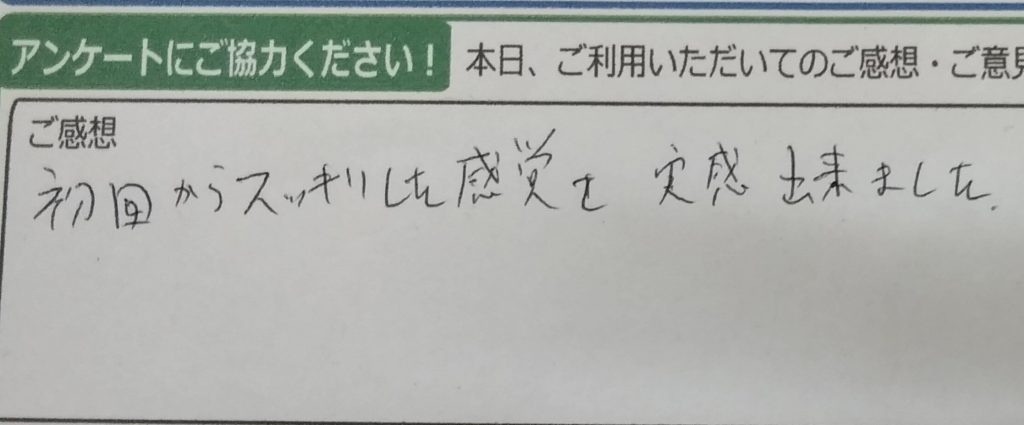 アンケートにご協力ください！ 本日、ご利用いただいてのご感想・ご意見
ご感想
初回からスッキリした感覚を 実感 出来ました.